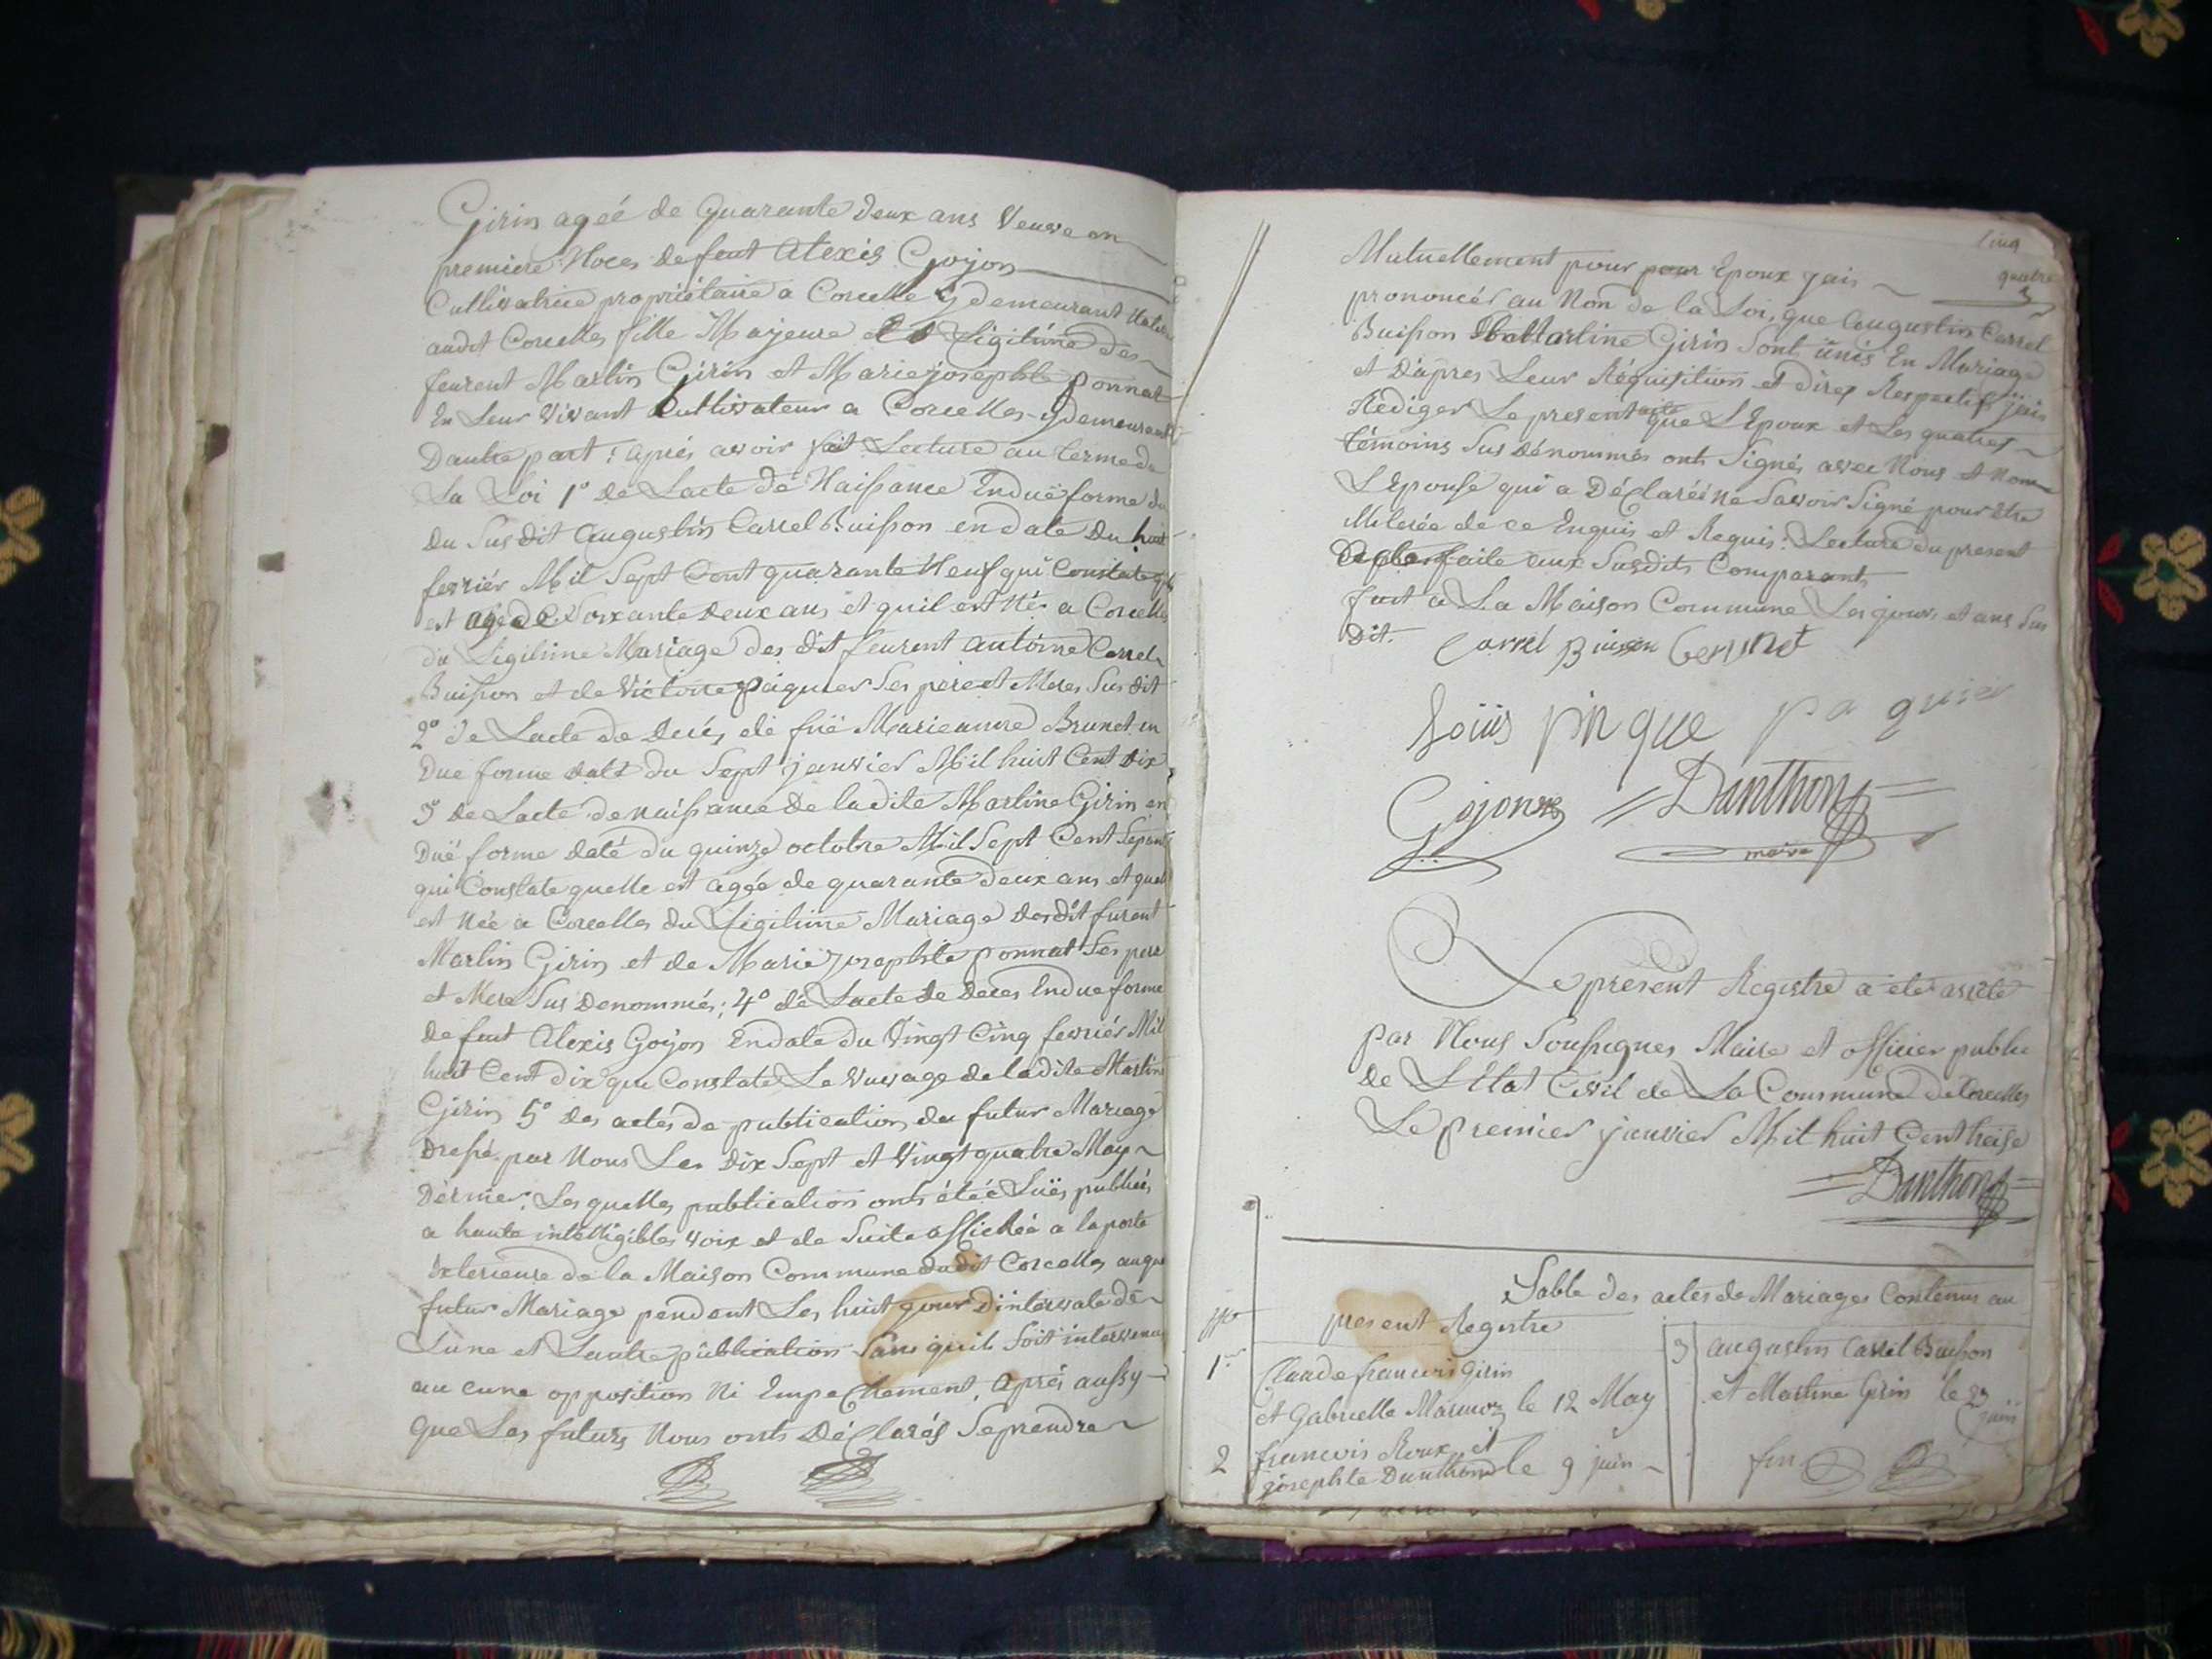 Girin ageé de quarante deux ans Veuve en
premiere Noces defeut Alexis Gojon
Cultivatrice propriétaire a Corcelle y demeurant
audit Corcelles fille Majeure et Légitime des
feurent Martin Girin et Marie josephte ponnat
En Leur Vivant Cultivateur a Corcelles y demeurant
Dautre part : après avoir fait Lecture au terme de
La Loi 1° de Lacte de Naissance En duë forme du
du Susdit Augustin Carrel Buisson en date du huit
fevrier Mil Sept Cent quarante Neuf qui Constate
est agé de Soixante deux ans et quil est Né a Corcelles
du Légitime Mariage des dit feurent antoine Carrel
Buisson et de Victoire paiguier Ses pere et Mere Sus dit
2° de Lacte de Decés de fuë Marieanne Brunet en
Due forme daté du Sept janvier Mil huit Cent Dix
3° de Lacte de naissance De ladite Martine Girin en
Duë forme daté du quinze octobre Mil Sept Cent
qui Constate quelle est agée de quarante deux ans et quel
est Née a Corcelles du Légitime Mariage desdit furent
Martin Girin et de Marie josephte ponnat Ses pere
et Mere Sus Denommés ; 4° de Lacte de Deces En due forme
de feut Alexis Gojon En date du Vingt Cinq fevrier Mil
huit Cent dix qui Constate Le Vuvage de ladite Martine
Girin 5° des actes de publication du futur Mariage
Dressé par Nous Les Dix Sept et Vingt quatre May
Dérnier. Les quelles publication onts étéé Luës publiés
a haute intelligibles voix et de Suite affichéé a la porte
Exterieure de la Maison Commune dudit Corcelles
futur Mariage pendent Les huit jour d'intervale de
Lune et Lautre publication Sans quil Soit intervenu
au cune opposition Ni Empechement, Après aussy
que Les futurs Nous onts Déclarés Seprendre
Cinq
quatre
Mutuellement pour pour Epoux jais
prononcés au Nom de la Loi, que Augustin Carrel
Buisson Et Martine Girin Sont ünis En Mariage
et Dàpres Leur Réquisition et dires Respectifs jais
Rédiger Le present acte que L'Epoux et Les quatres
témoins Sus dénommés onts Signés avec Nous et Non
L'Epouse qui a Déclaréé ne Savoir Signé pour être
de ce Enquis et Requis : Lecture du present
faite aux Susdits Comparants
fait a La Maison Commune Les jours et ans Sus
Dit. Carrel Buisson
Loüis
Gojon Danthon
maire
Le présent Regestre a été arrêté
par Nous Soussignes Maire et officier public
de L'Etat Civil de La Commune de Corcelles
Le premier janvier Mil huit Cent treise
Danthon
Table des actes de Mariages Contenus au
present Regestre
1er Claude francois Girin
et Gabrielle Marmoz le 12 May
2 francois Roux et
josephte Danthon le 9 juin
3 augustin Carrel Buisson
et Martine Girin le 23
juin
fin